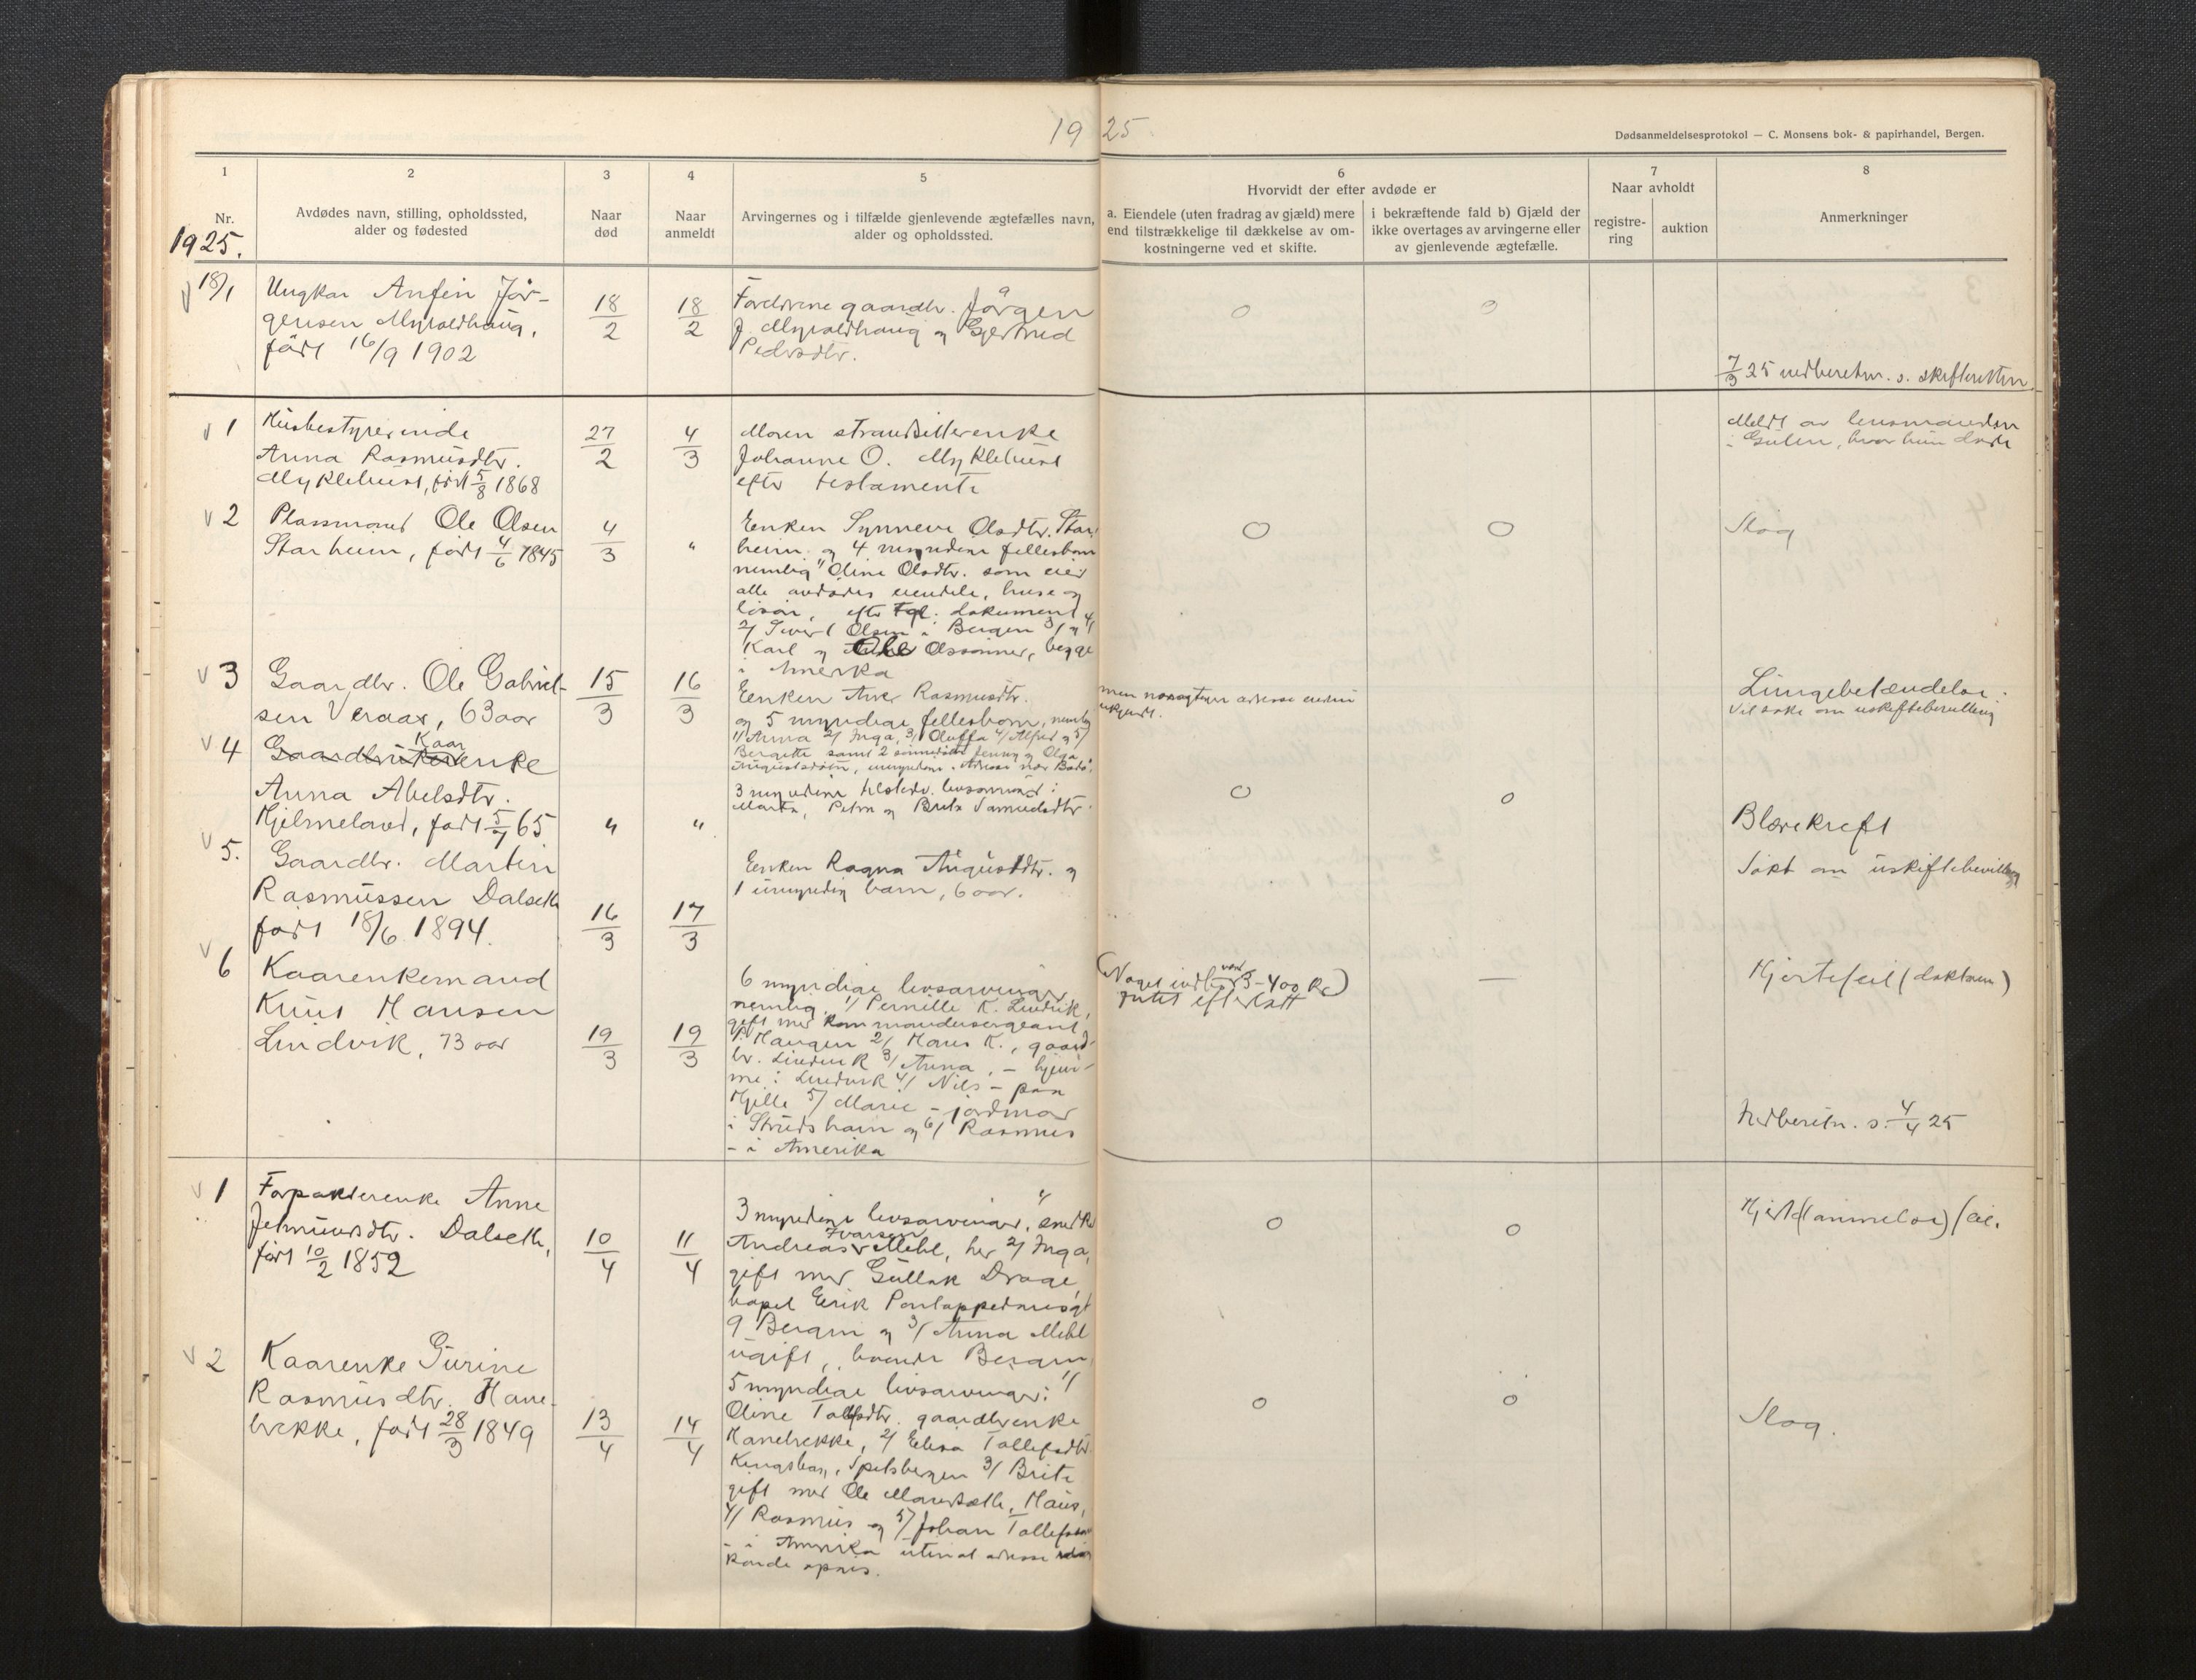 1925
Dødsanmeldelsesprotokol — C. Monsens bok- & papirhandel, Bergen.
1
2
3
4
5
6
7
8
Nr.
Avdødes navn, stilling, opholdssted,
alder og fødested
Naar
død
Naar
anmeldt
Arvingernes og i tilfælde gjenlevende ægtefælles navn,
alder og opholdssted.
Hvorvidt der efter avdøde er
a. Eiendele (uten fradrag av gjæld) mere
end tilstrækkelige til dækkelse av om-
kostningerne ved et skifte.
i bekræftende fald b) Gjæld der
ikke overtages av arvingerne eller
av gjenlevende ægtefælle.
Naar avholdt
registre-
ring
auktion
Anmerkninger
1925.
18/1
Ungkar Anfin Jør-
gensen Myroldhaug,
født 16/9 1902
18/2
18/2
Foreldrene gaardbr. Jørgen
J. Myroldhaug og Gjertrud
Pedersdtr.
0
0
7/3 25 indberetn. s. skifteretten
1
Husbestyrerinde
Anna Rasmusdtr.
Myklebust, født 5/8 1868
27/2
4/3
Moren strandsitterenke
Johanne O. Myklebust
efter testamente
Meldt av lensmanden
i Gulen, hvor hun døde
2
Plassmand Ole Olsen
Starheim, født 4/6 1845
4/3
"
Enken Synneve Olsdtr. Star-
heim og 4 myndige fellesbarn
nemlig 1/ Oline Olsdtr. som eier
alle avdødes eiendele, huse og
løsøre, efter tgl. dokument
2/ Sivert Olsen i Bergen 3/ og 4/
Karl og Ole Olssønner, begge
i Amerika
0
0
Slag
3
Gaardbr. Ole Gabriel-
sen Veraas, 63 aar
15/3
16/3
Enken Ane Rasmusdtr.
og 5 myndige fellesbarn, nemlig
1/ Anna 2/ Inga, 3/ Oluffa 4/ Alfred og 5/
Bergitte samt 2 sønnedøtre Jenny og Olga
Augustsdøtre, umyndige. Adresse nær Bodø,
men nøyagtigere adresse endnu
ukjendt.
Lungebetændelse.
Vil søke om uskiftebevilling
4
Kaar
Gaardbrukerenke
Anna Abelsdtr.
Hjelmeland, født 5/7 65
"
"
3 myndige tilstedev. livsarvinger:
Marta, Petra og Brita Samuelsdtr.
0
0
Blærekreft
5.
Gaardbr. Martin
Rasmussen Dalseth
født 18/6 1894.
16/3
17/3
Enken Ragna Augustdtr. og
1 umyndig barn, 6 aar.
Søkt om uskiftebevilling
6
Kaarenkemand
Knut Hansen
Lindvik, 73 aar
19/3
19/3
6 myndige livsarvinger
nemlig 1/ Pernille K. Lindvik,
gift med kommandersergeant
P. Haugen 2/ Hans K., gaard-
br. Lindvik 3/ Anna, - hjem-
me i Lindvik 4/ Nils - paa
Hjelle 5/ Marie - jordmor
i Strudshavn og 6/ Rasmus
- i Amerika
intet efterlatt
—
Hjertefeil (doktoren)
Indberetn. s. 4/4 25
1
Forpakterenke Anne
Jetmundsdtr. Dalseth,
født 10/2 1852
10/4
11/4
3 myndige livsarvinger. 1/ snedker
Andreas Ivarsen Mehl, her 2/ Inga,
gift med Gullak Drage,
kapel Erik Pontoppedansgt
9 Bergen og 3/ Anna Mehl
ugift, boende Bergen,
0
0
2
Kaarenke Gurine
Rasmusdtr. Hane-
brekke, født 28/3 1849
13/4
14/4
5 myndige livsarvinger: 1/
Oline Tollefsdtr. gaardbrenke
Hanebrekke, 2/ Elena Tollefsdtr.
Kingsbay, Spetsbergen 3/ Brite
gift med Ole Hans,
4/ Rasmus og 5/ Johan Tollefssøn
- i Amerika uten at adresse
kunde opgis.
0
0
Slag.